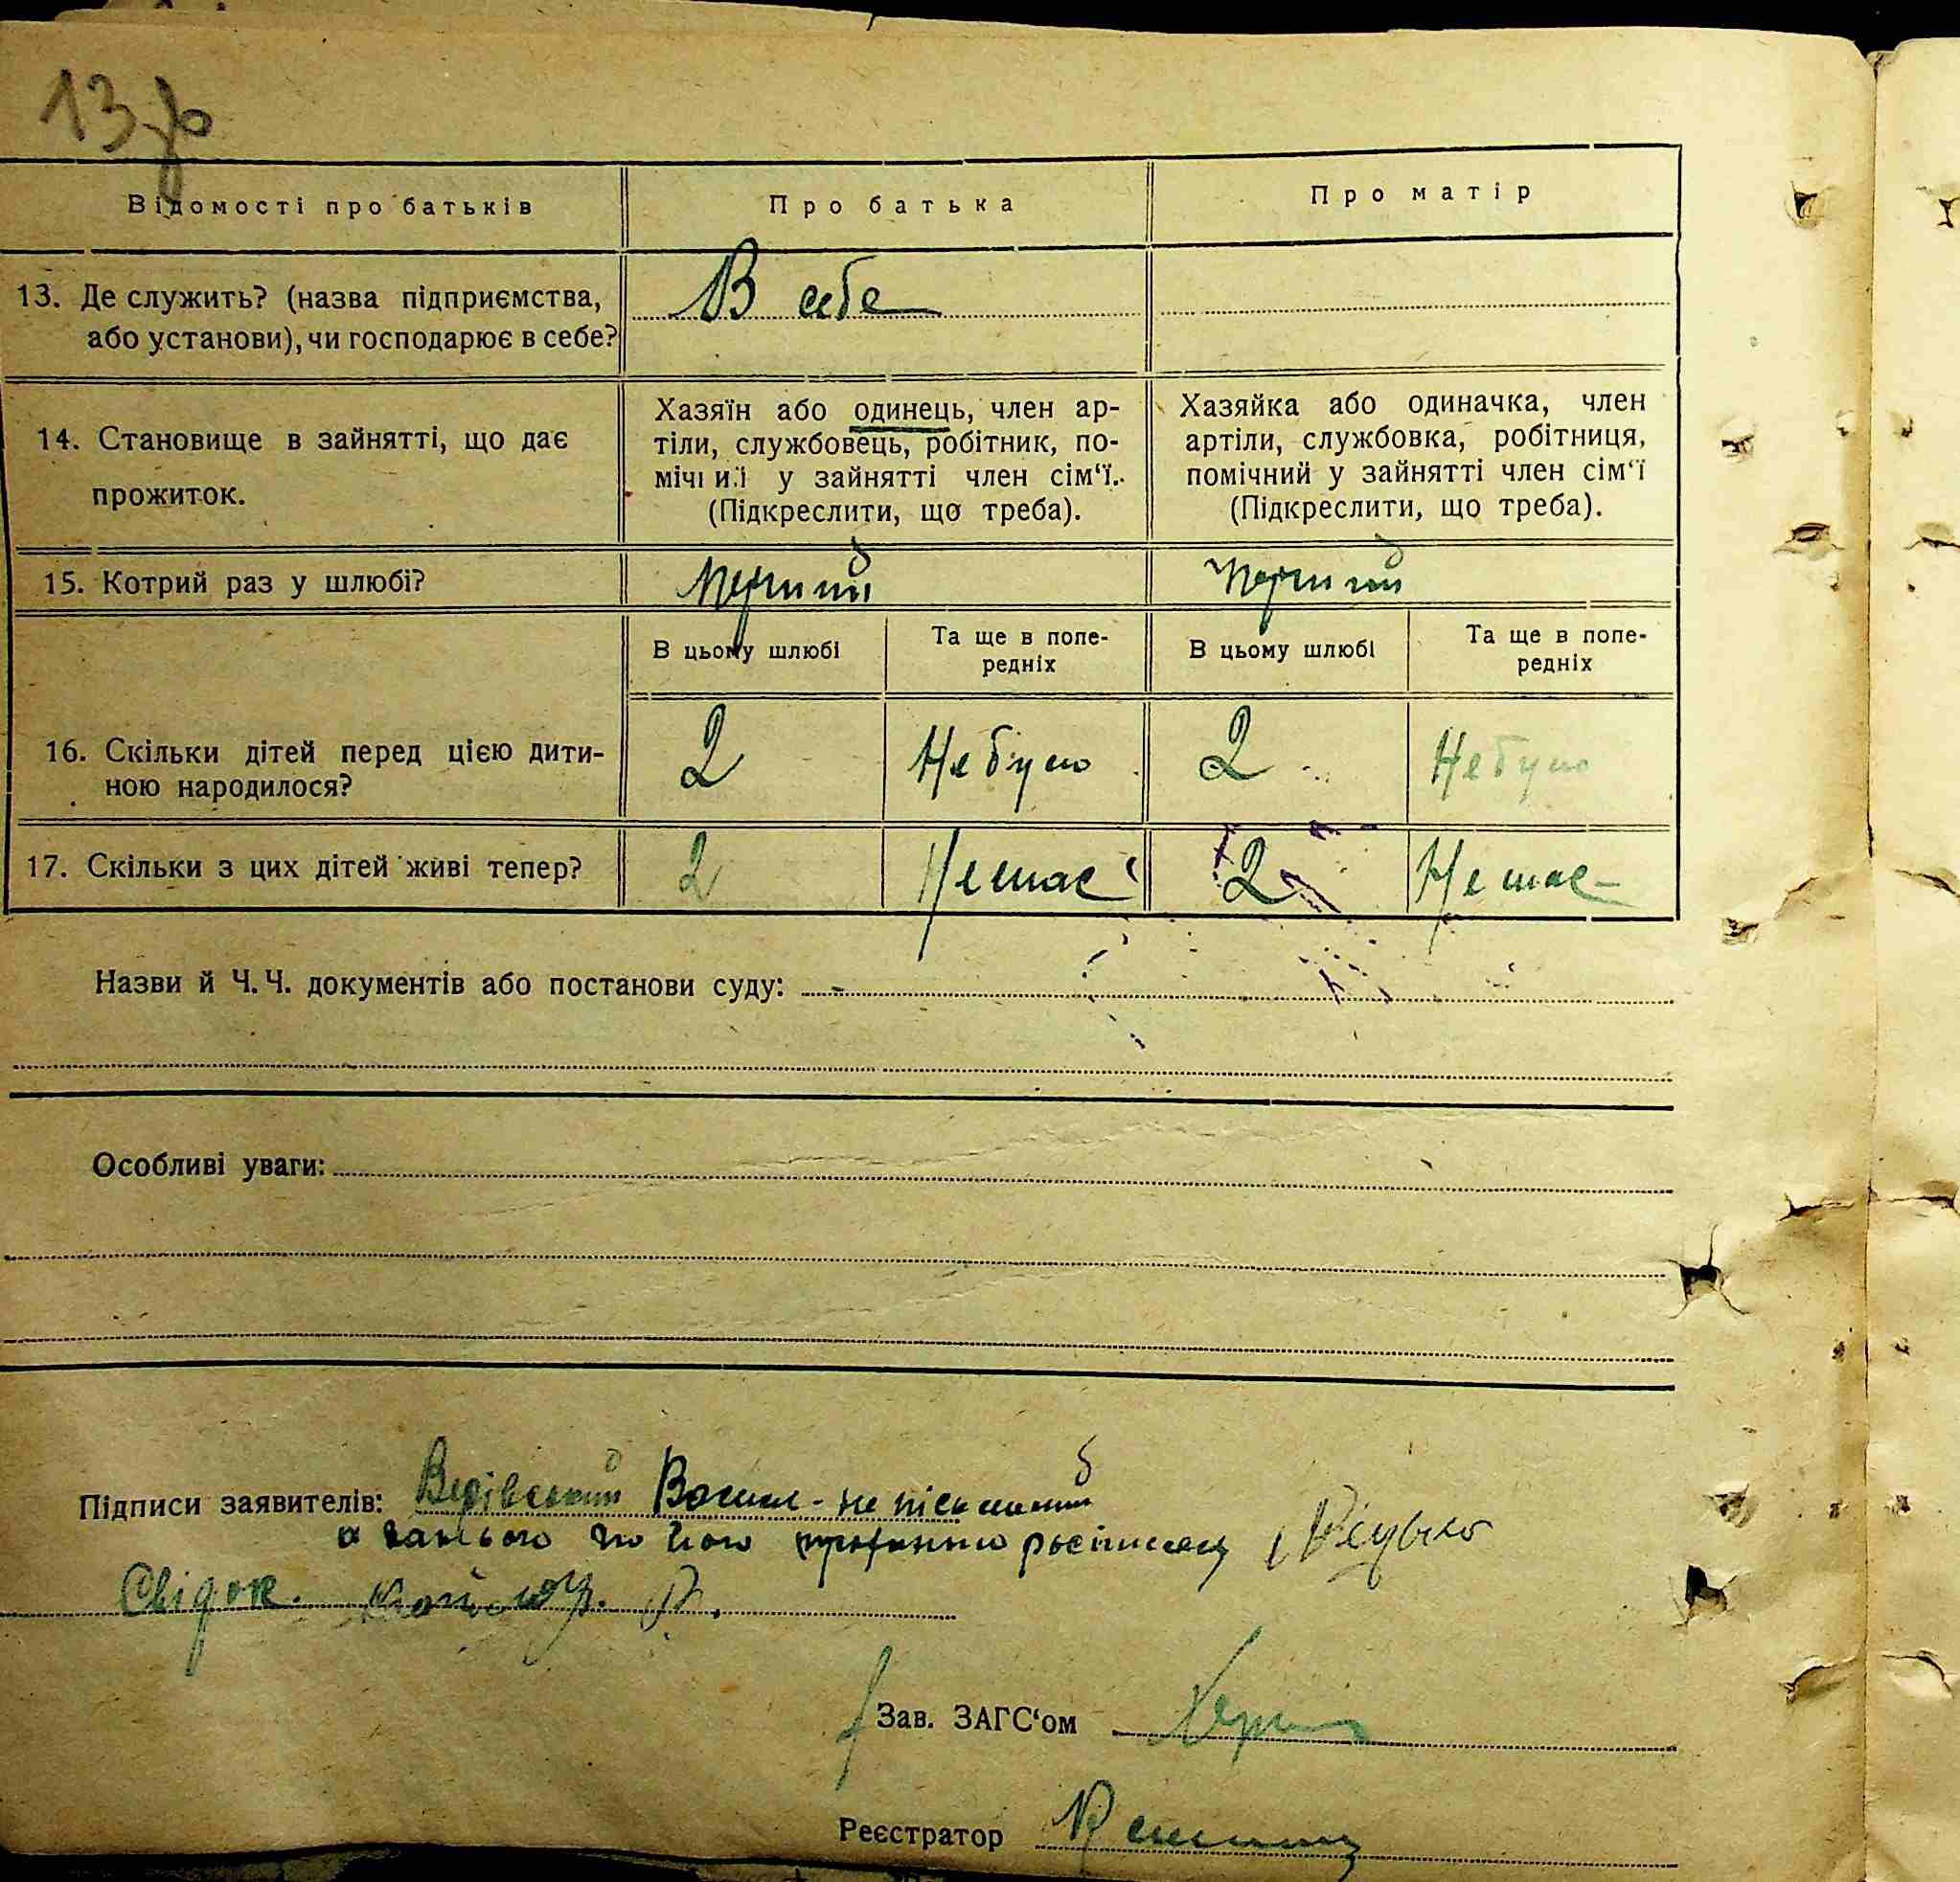 13
Відомості про батьків Про батька Про матір
13. Де служить? (назва підприємства, або установи), чи господарює в себе? В себе
14. Становище в зайнятті, що дає прожиток.
Хазяїн або одинець, член ар-
тіли, службовець, робітник, по-
мічний у зайнятті член сім‘ї.
(Підкреслити, що треба).
Хазяйка або одиначка, член
артіли, службовка, робітниця,
помічний у зайнятті член сім‘ї
(Підкреслити, що треба).
15. Котрий раз у шлюбі? Перший Перший
В цьому шлюбі Та ще в попе-редніх В цьому шлюбі Та ще в попе-редніх
16. Скільки дітей перед цією дити-ною народилося? 2 Не було 2 Не було
17. Скільки з цих дітей живі тепер? 2 Немає 2 Немає
Назви й Ч. Ч. документів або постанови суду:
Особливі уваги:
Підписи заявителів: Василь - не письменний
а за нього по його
Свідок.
Зав. ЗАГС‘ом
Реєстратор